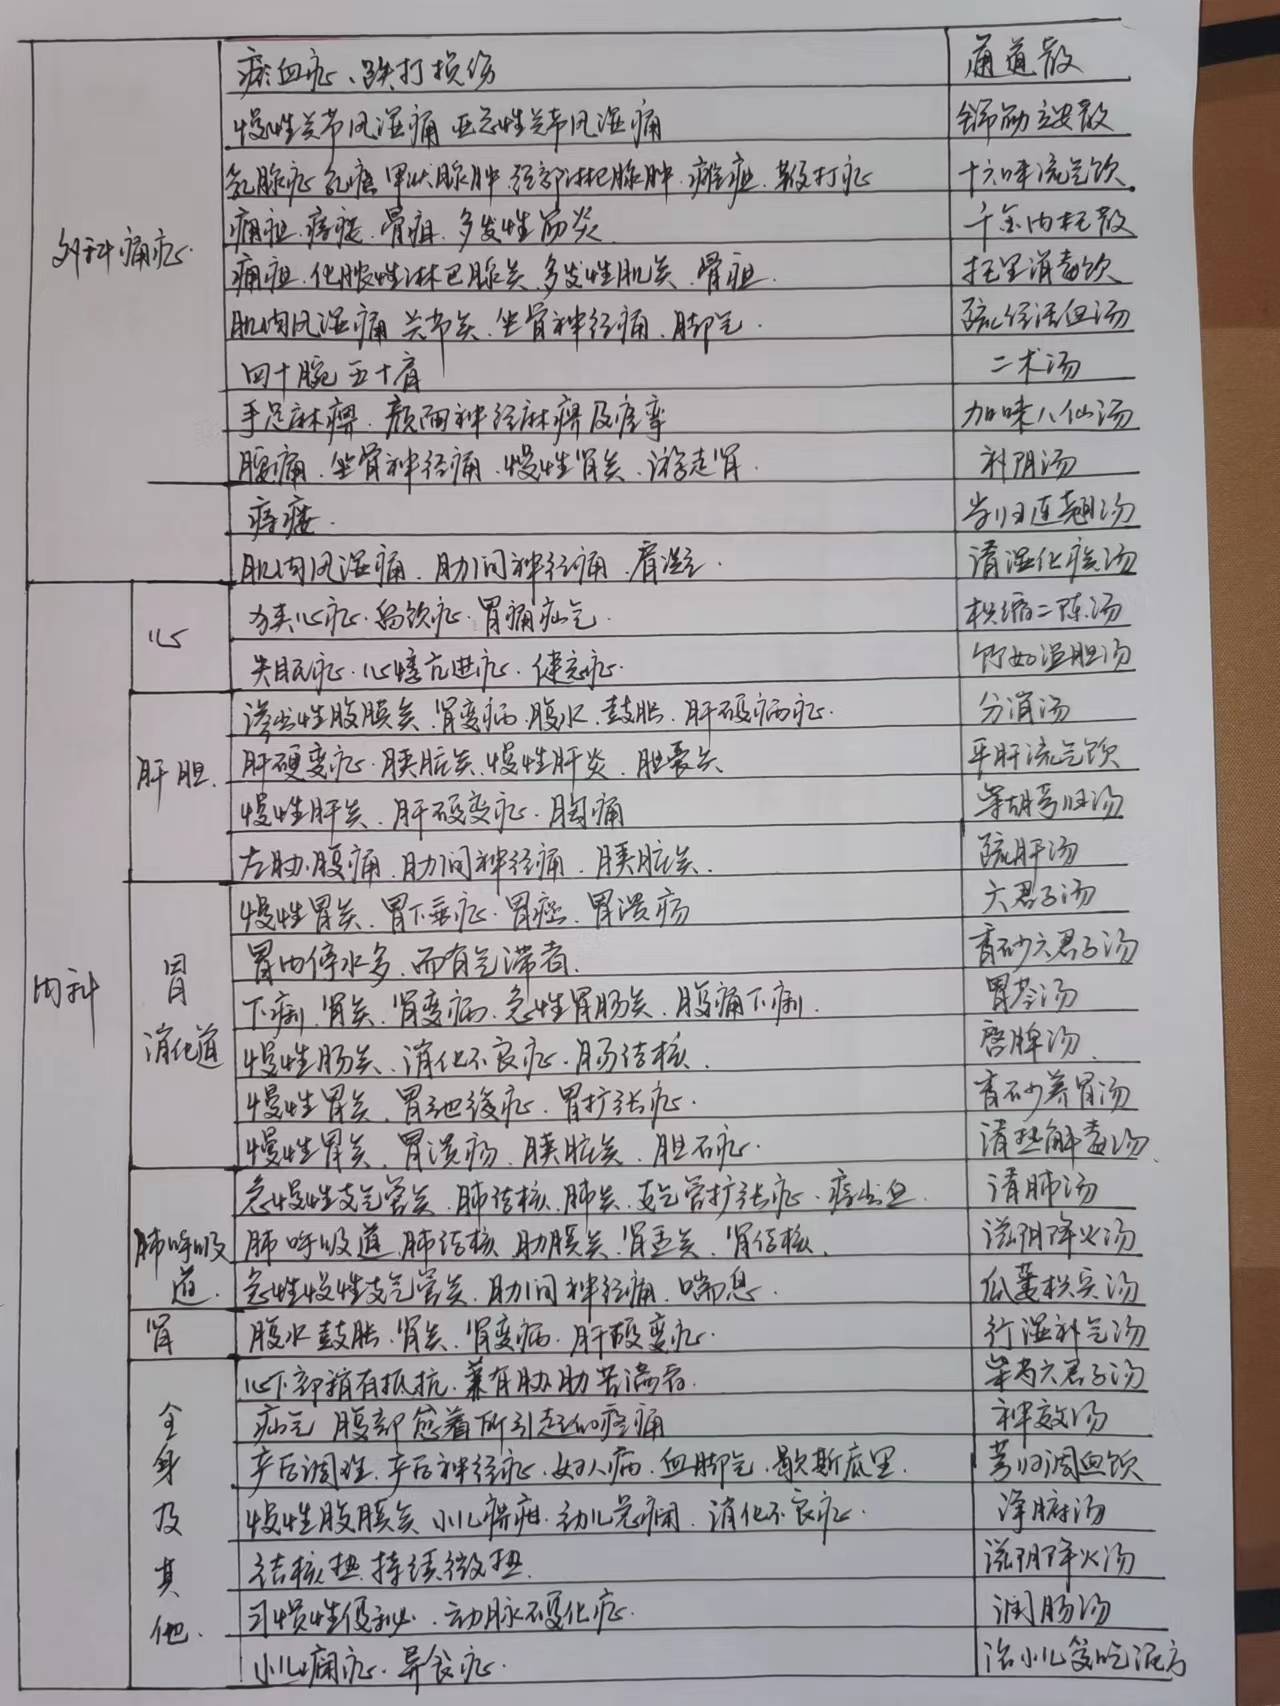 瘀血症、跌打损伤 通道散
慢性关节风湿痛 亚急性关节风湿痛 舒筋立安散
乳腺症 乳癌 甲状腺肿 颈部淋巴腺肿 瘫疽 鞭打症 十六味流气饮
外科痛症
痈疽 痔瘘 骨疽 多发性筋炎 千金内托散
痈疽 化脓性淋巴腺炎 多发性肌炎 骨疽 托里消毒饮
肌肉风湿痛 关节炎 坐骨神经痛 脚气 疏经活血汤
四十腕 五十肩 二术汤
手足麻痹 颜面神经麻痹及痉挛 加味八仙汤
腰痛 坐骨神经痛 慢性肾炎 游走肾 补阴汤
痔瘘 当归连翘汤
肌肉风湿痛 肋间神经痛 肩凝症 清湿化痰汤
内科
心
狭心症 留饮症 胃痛疝气 枳缩二陈汤
失眠症 心悸亢进症 健忘症 竹如温胆汤
肝胆
渗出性腹膜炎 肾变病 腹水 鼓胀 肝硬病症 分消汤
肝硬变症 胰脏炎 慢性肝炎 胆囊炎 平肝流气饮
慢性肝炎 肝硬变症 胸痛 柴胡芎归汤
左胁腹痛 肋间神经痛 胰脏炎 疏肝汤
胃消化道
慢性胃炎 胃下垂症 胃癌 胃溃疡 六君子汤
胃内停水多 而有气滞者 香砂六君子汤
下痢 肾炎 肾变病 急性胃肠炎 腹痛下痢 胃苓汤
慢性肠炎 消化不良症 肠结核 启脾汤
慢性胃炎 胃弛缓症 胃扩张症 香砂养胃汤
慢性胃炎 胃溃疡 胰脏炎 胆石症 清热解毒汤
肺呼吸道
急慢性支气管炎 肺结核 肺炎 支气管扩张症 痔出血 清肺汤
肺呼吸道 肺结核 肋膜炎 肾盂炎 肾结核 滋阴降火汤
急性慢性支气管炎 肋间神经痛 喘息 瓜蒌枳实汤
肾
腹水 鼓胀 肾炎 肾变病 肝硬变症 行湿补气汤
全身及其他
心下部稍有抵抗 兼有胁肋苦满者 柴芍六君子汤
疝气 腹部愈着所引起的疼痛 神效汤
产后调理 产后神经症 妇人病 血脚气 歇斯底里 芎归调血饮
慢性腹膜炎 小儿癖疳 幼儿急痫 消化不良症 净腑汤
结核热 持续微热 滋阴降火汤
习惯性便秘 动脉硬化症 润肠汤
小儿痫症 异食症 治小儿爱吃泥方